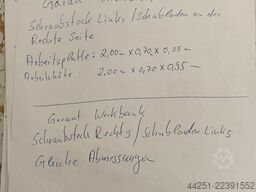 Garant
Schraubstock Links / Schubladen an der
Rechte Seite
Arbeitsplatte: 2,00m x 0,70 x 0,05
Arbeitshöhe: 2,00m x 0,70 x 0,95
Garant Werkbank
Schraubstock Rechts / Schubladen Links
Gleiche Abmessungen
44251-22391552